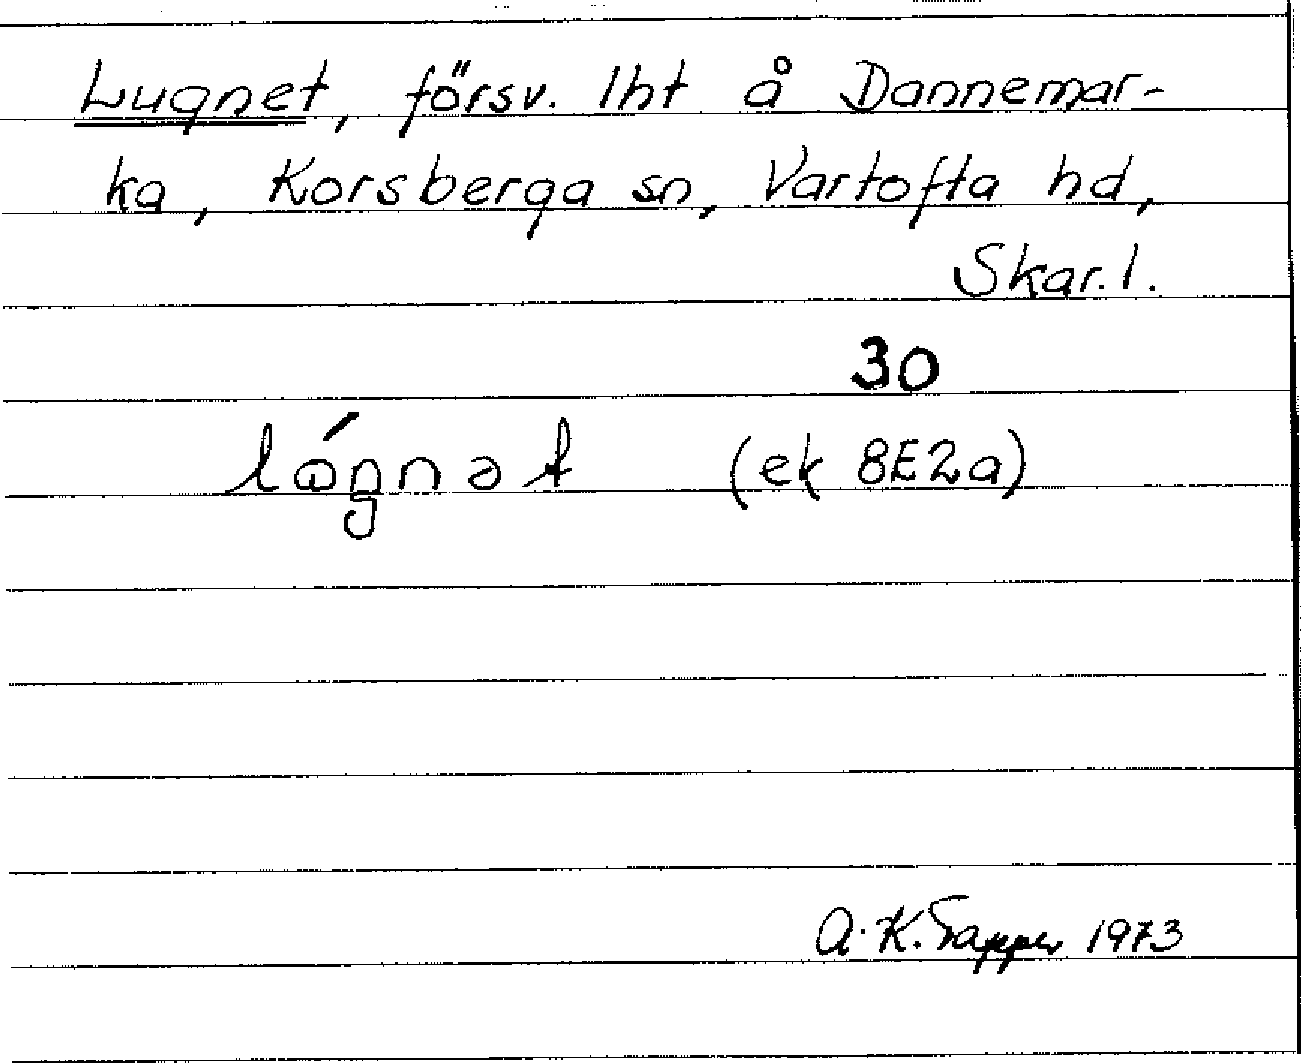 Lugnet, försv. lht å Dannemar-
ka, Korsberga sn, Vartofta hd,
Skar. l.
30
(ek 8E2a)
A. K. Tapper 1973